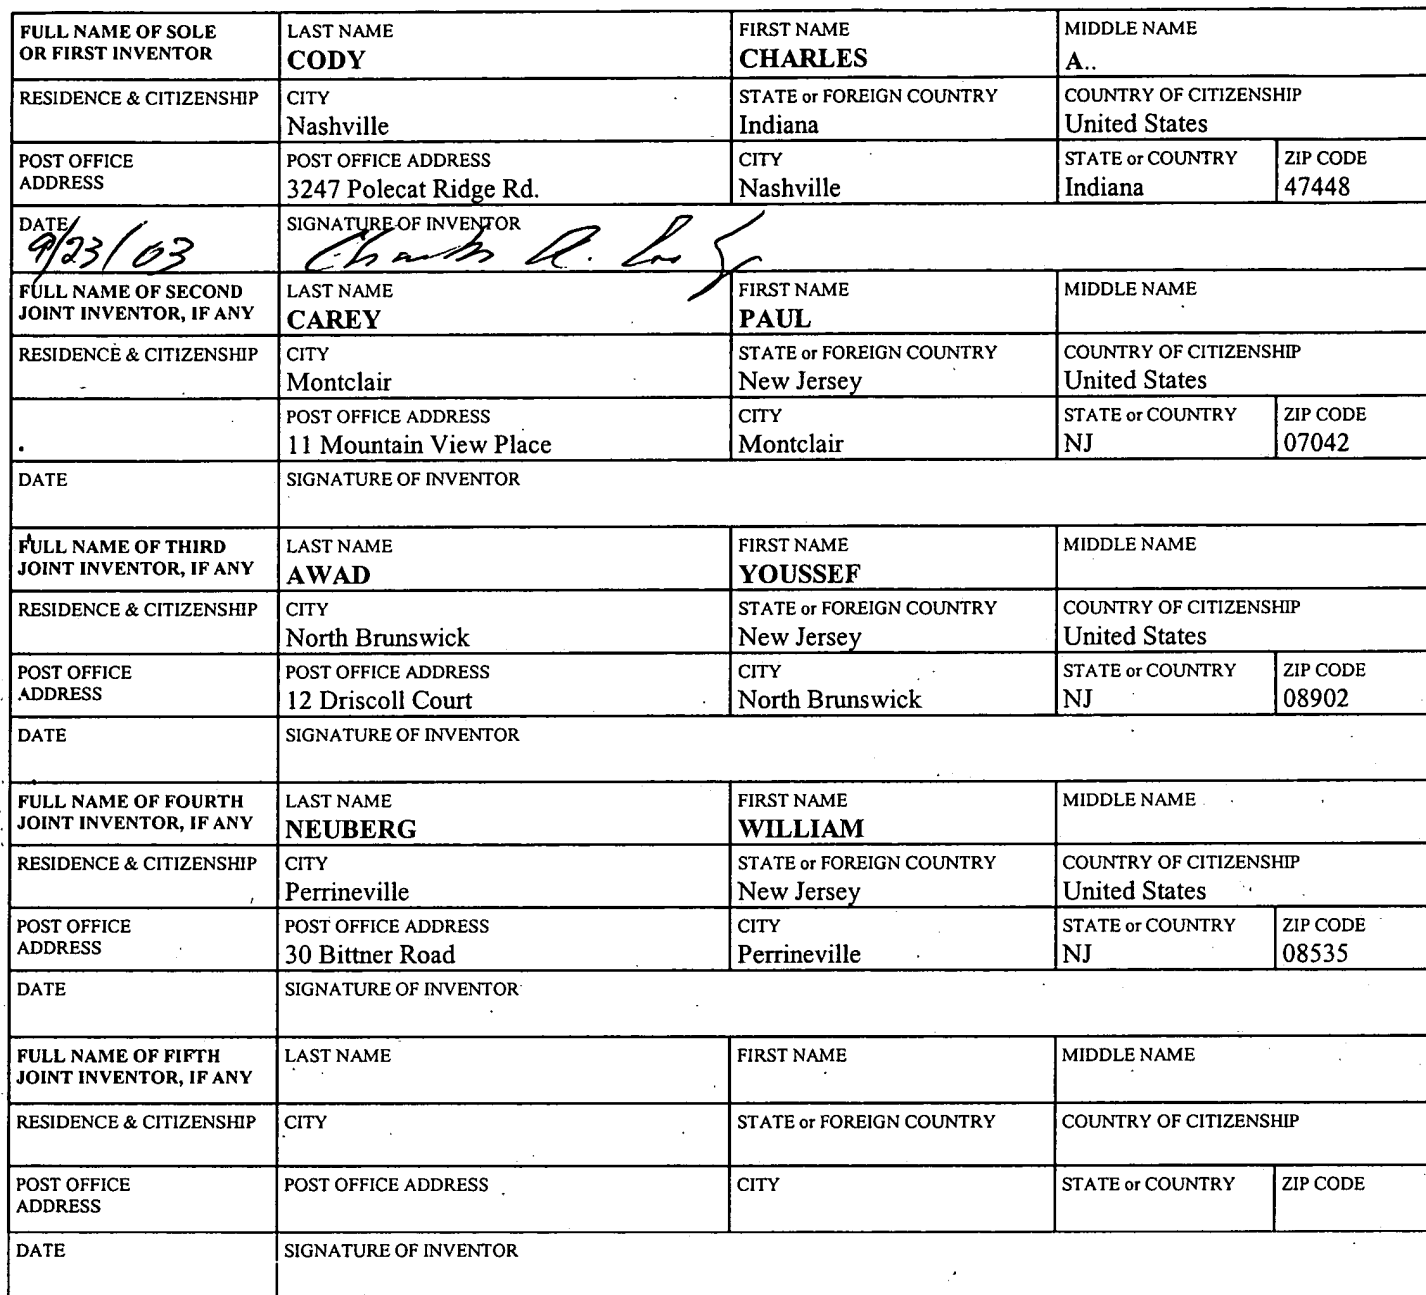 FULL NAME OF SOLE OR FIRST INVENTOR LAST NAME CODY FIRST NAME CHARLES MIDDLE NAME A..
RESIDENCE & CITIZENSHIP CITY Nashville STATE or FOREIGN COUNTRY Indiana COUNTRY OF CITIZENSHIP United States
POST OFFICE ADDRESS POST OFFICE ADDRESS 3247 Polecat Ridge Rd. CITY Nashville STATE or COUNTRY Indiana ZIP CODE 47448
DATE 9/23/03 SIGNATURE OF INVENTOR Charles A. Cody
FULL NAME OF SECOND JOINT INVENTOR, IF ANY LAST NAME CAREY FIRST NAME PAUL MIDDLE NAME
RESIDENCE & CITIZENSHIP CITY Montclair STATE or FOREIGN COUNTRY New Jersey COUNTRY OF CITIZENSHIP United States
POST OFFICE ADDRESS 11 Mountain View Place CITY Montclair STATE or COUNTRY NJ ZIP CODE 07042
DATE SIGNATURE OF INVENTOR
FULL NAME OF THIRD JOINT INVENTOR, IF ANY LAST NAME AWAD FIRST NAME YOUSSEF MIDDLE NAME
RESIDENCE & CITIZENSHIP CITY North Brunswick STATE or FOREIGN COUNTRY New Jersey COUNTRY OF CITIZENSHIP United States
POST OFFICE ADDRESS POST OFFICE ADDRESS 12 Driscoll Court CITY North Brunswick STATE or COUNTRY NJ ZIP CODE 08902
DATE SIGNATURE OF INVENTOR
FULL NAME OF FOURTH JOINT INVENTOR, IF ANY LAST NAME NEUBERG FIRST NAME WILLIAM MIDDLE NAME
RESIDENCE & CITIZENSHIP CITY Perrineville STATE or FOREIGN COUNTRY New Jersey COUNTRY OF CITIZENSHIP United States
POST OFFICE ADDRESS POST OFFICE ADDRESS 30 Bittner Road CITY Perrineville STATE or COUNTRY NJ ZIP CODE 08535
DATE SIGNATURE OF INVENTOR
FULL NAME OF FIFTH JOINT INVENTOR, IF ANY LAST NAME FIRST NAME MIDDLE NAME
RESIDENCE & CITIZENSHIP CITY STATE or FOREIGN COUNTRY COUNTRY OF CITIZENSHIP
POST OFFICE ADDRESS POST OFFICE ADDRESS CITY STATE or COUNTRY ZIP CODE
DATE SIGNATURE OF INVENTOR